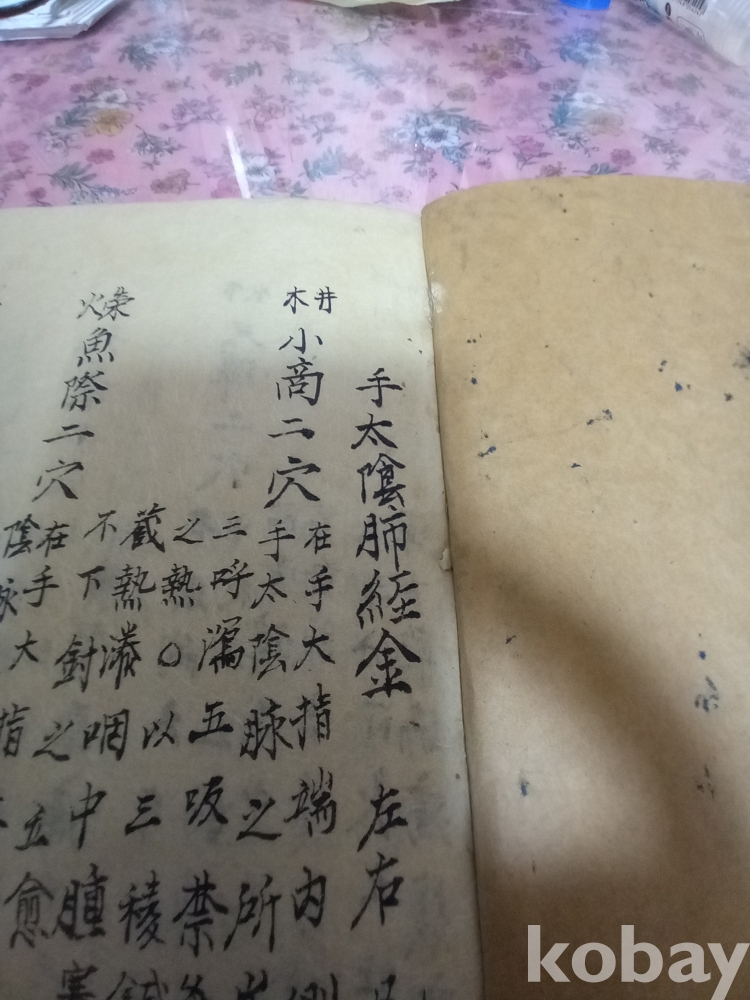 手太陰肺經金 左右
井
木
小商二穴
在手大指端內側
手太陰脉之所出
三呼瀉五吸禁
之熱○以三稜鍼
藏熱湊咽中腫
不下針之立愈
榮
火
魚際二穴
在手大指
陰脉
kobay